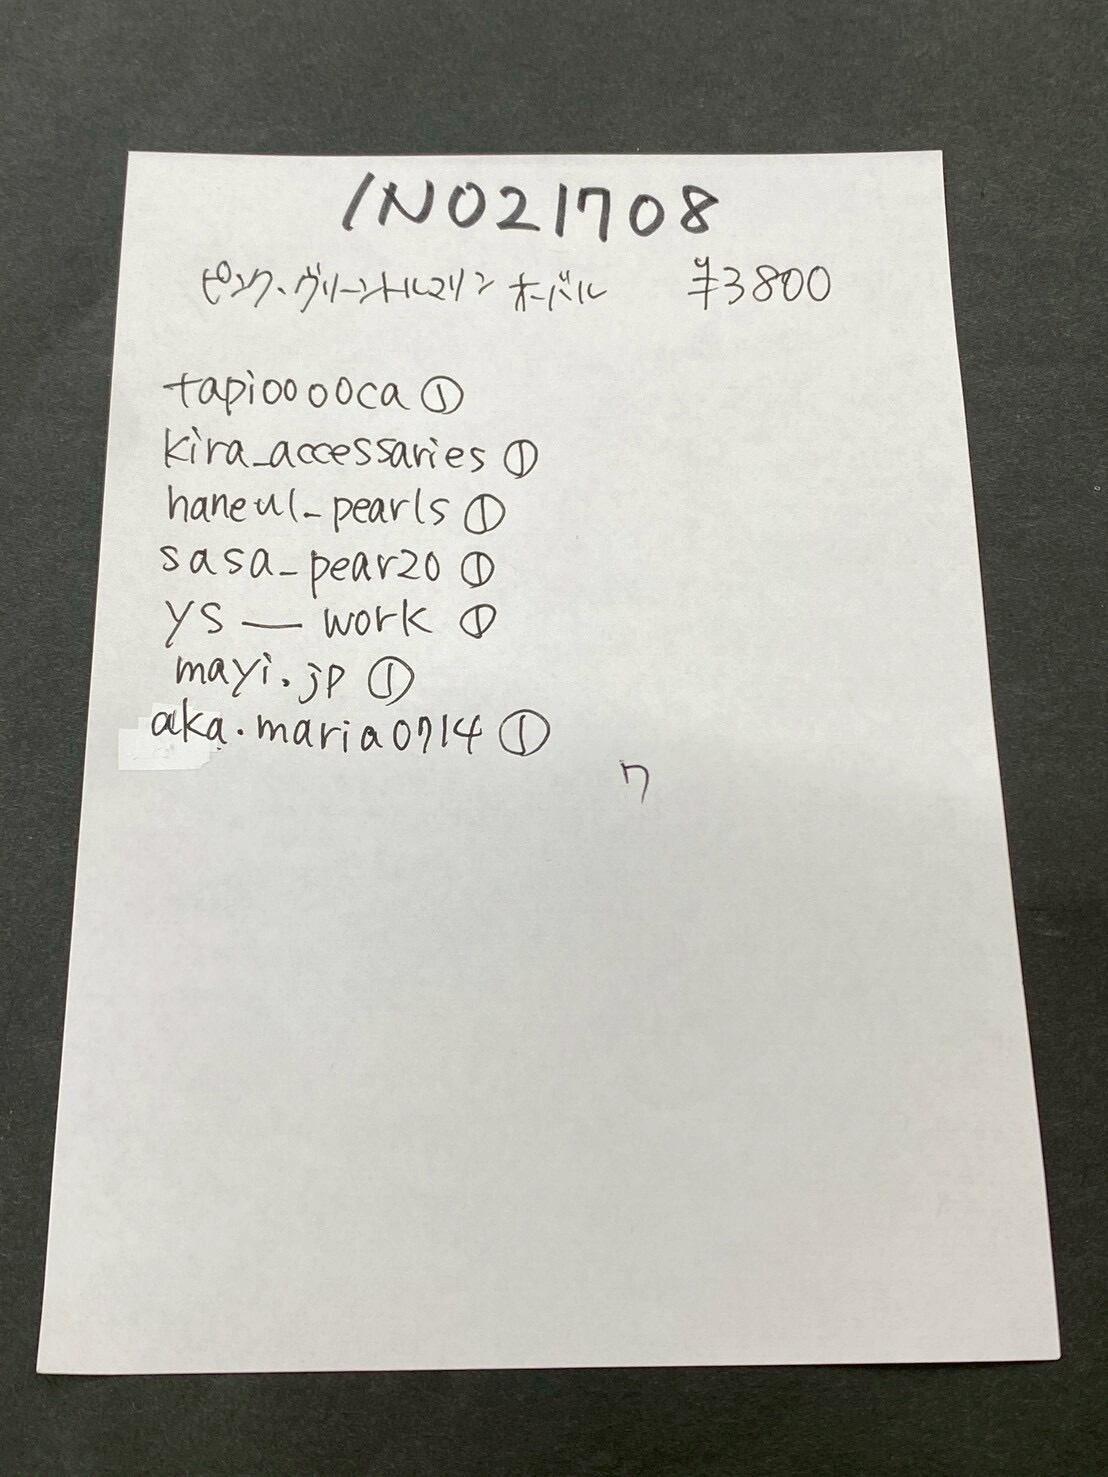 IN021708
ピンク、グリーントルマリン オーバル ¥3800
tapioo00ca ①
kira_accessaries ①
haneul_pearls ①
sasa_pear20 ①
ys__work ①
mayi.jp ①
aka.maria0714 ①
7